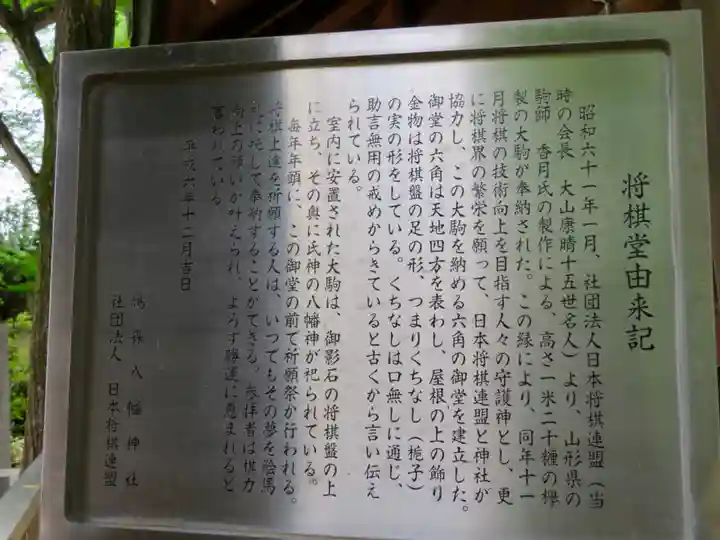 将棋堂由来記
昭和六十一年一月、社団法人日本将棋連盟（当
時の会長　大山康晴十五世名人）より、山形県の
駒師　香月氏の製作による、高さ一米二十糎の欅
製の大駒が奉納された。この縁により、同年十一
月将棋の技術向上を目指す人々の守護神とし、更
に将棋界の繁栄を願って、日本将棋連盟と神社が
協力し、この大駒を納める六角の御堂を建立した。
御堂の六角は天地四方を表わし、屋根の上の飾り
金物は将棋盤の足の形、つまりくちなし（梔子）
の実の形をしている。くちなしは口無しに通じ、
助言無用の戒めからきていると古くから言い伝え
られている。
室内に安置された大駒は、御影石の将棋盤の上
に立ち、その奥に氏神の八幡神が祀られている。
毎年年頭に、この御堂の前で祈願祭が行われる。
将棋上達を祈願する人は、いつでもその夢を絵馬
に托して奉納することができる。参拝者は棋力
向上の願いが叶えられ、よろず勝運に恵まれると
言われている
平成六年十二月吉日
鳩森八幡神社
社団法人　日本将棋連盟